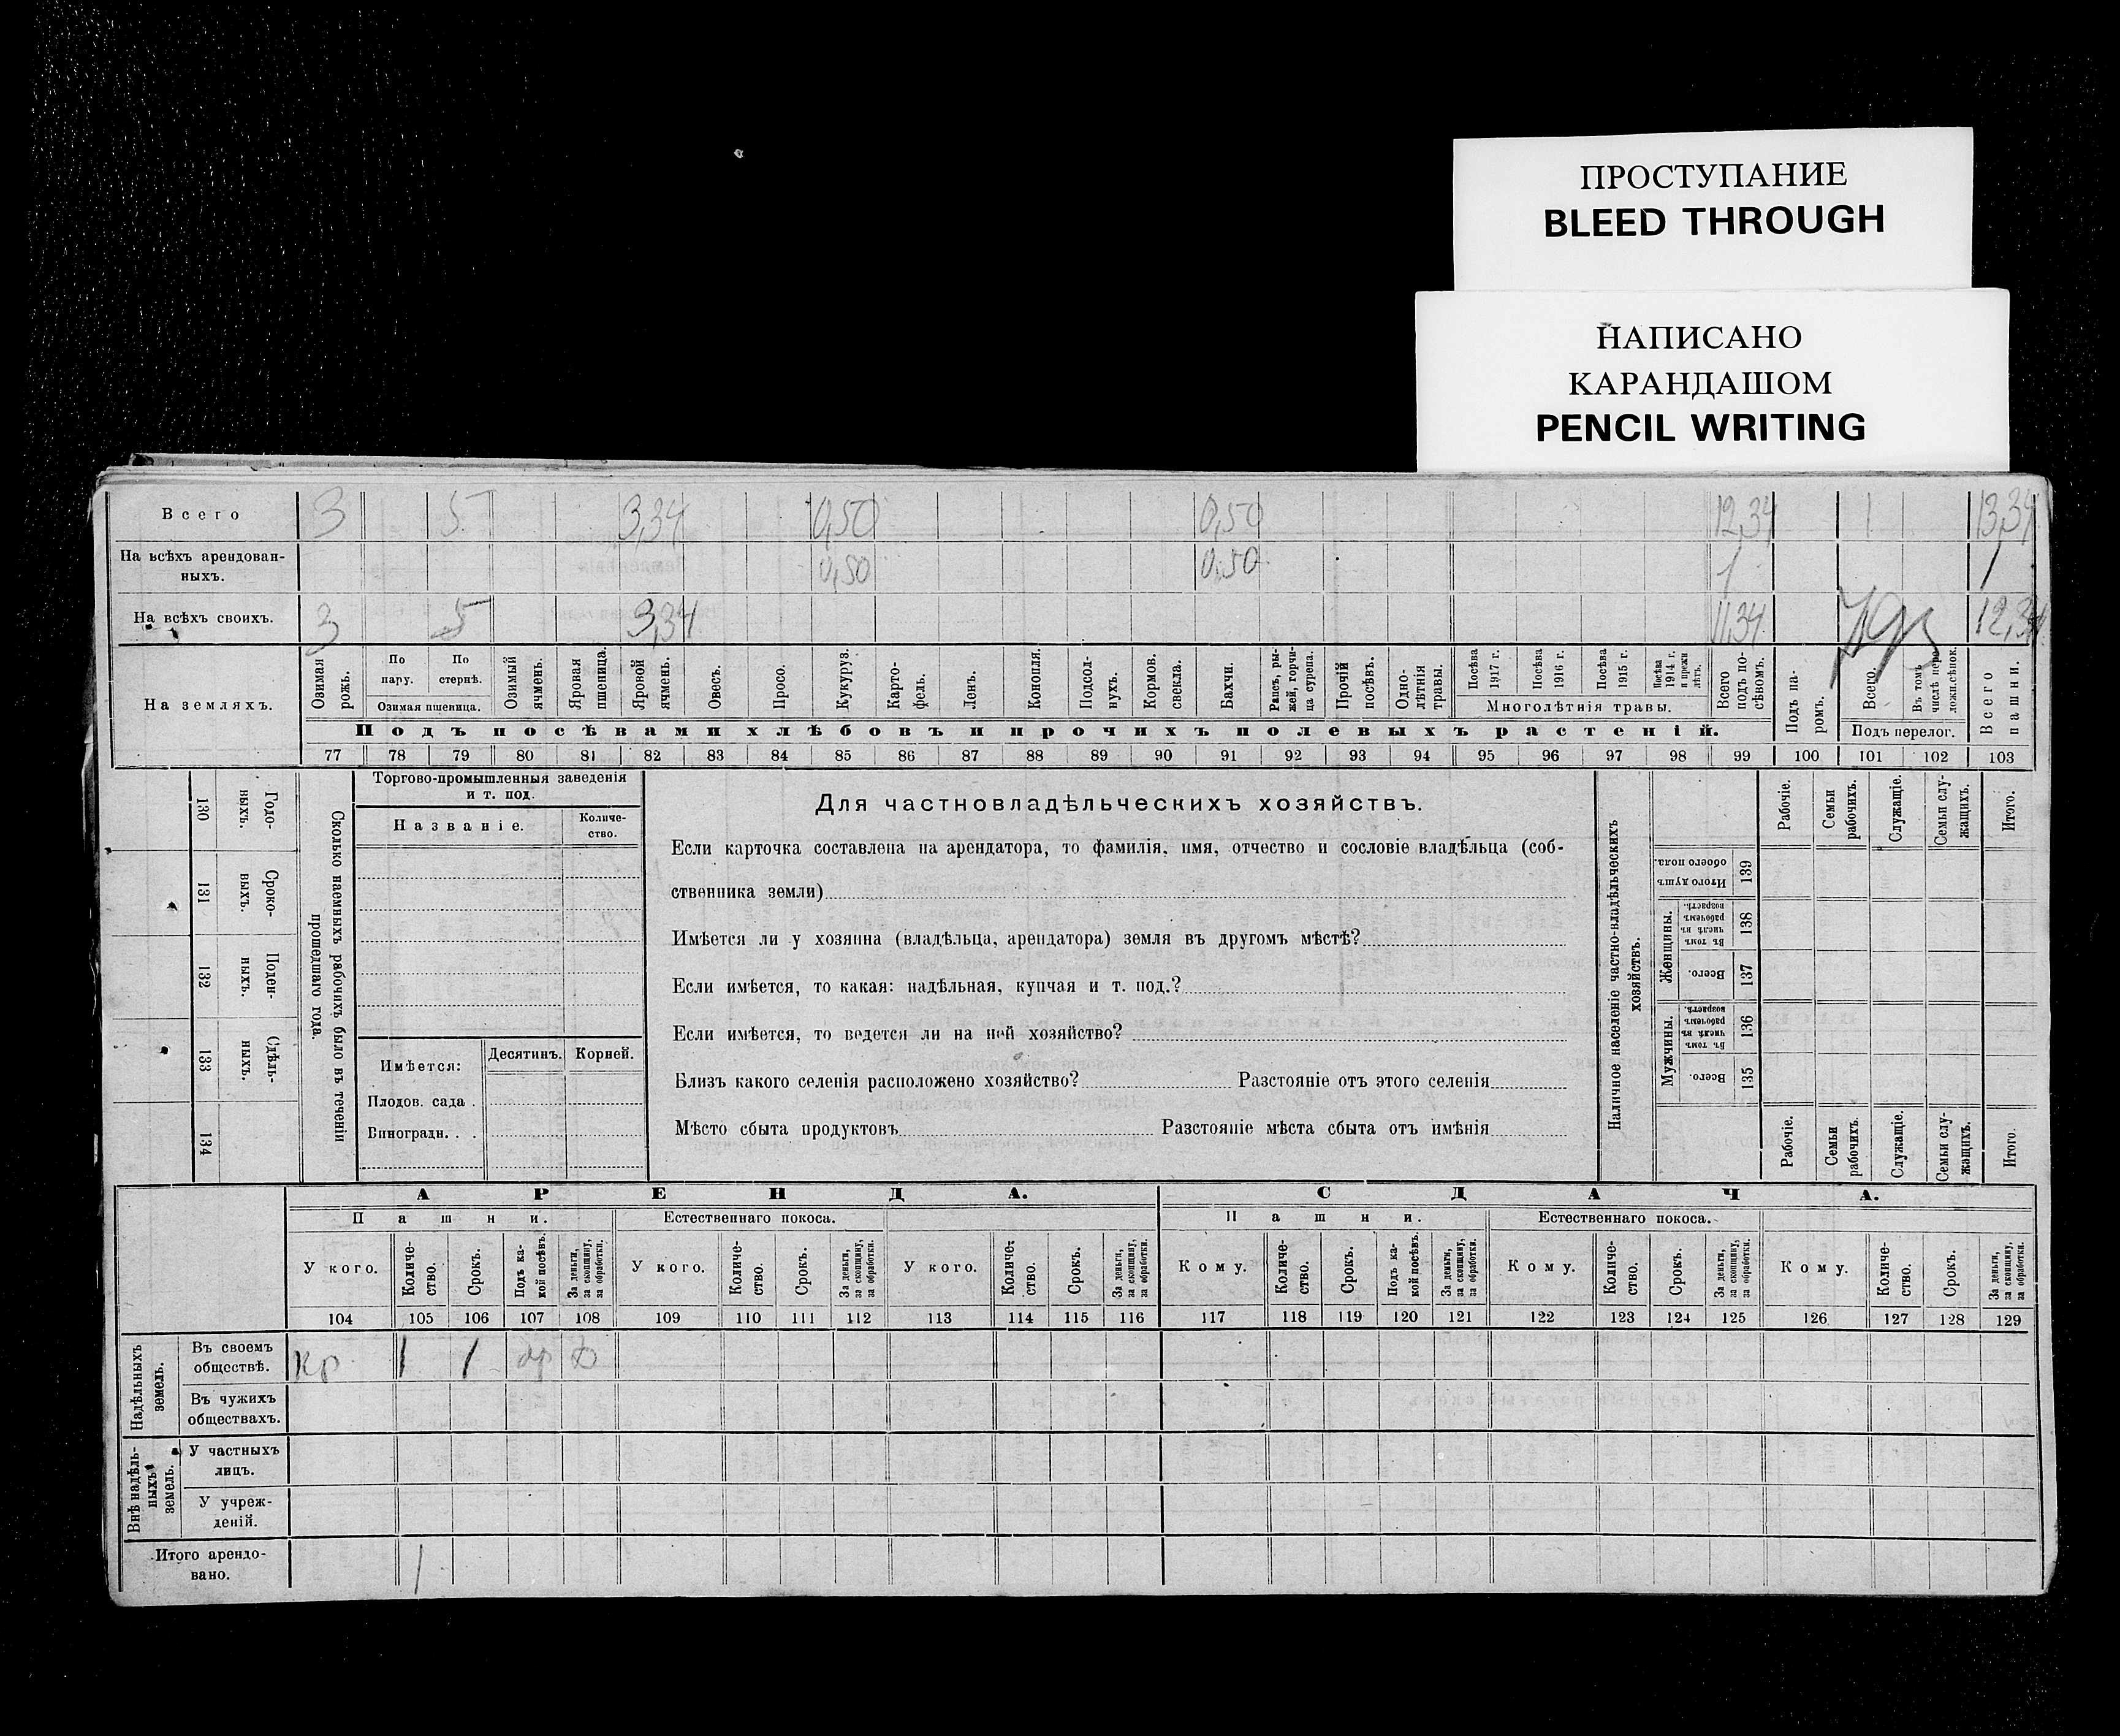 ПРОСТУПАНИЕ
BLEED THROUGH
НАПИСАНО
КАРАНДАШОМ
PENCIL WRITING
Всего 3 5 3,34 0,50 0,50 12,34 1 13,34
На всѣхъ арендован-
ныхъ. 0,50 0,50 1 1
На всѣхъ своихъ. 3 5 3,34 11,34 12,34
На земляхъ.
Озимая рожь.
По пару.
По стернѣ.
Озимая пшеница.
Озимый ячмень.
Яровая пшеница.
Яровой ячмень.
Овесъ.
Просо.
Кукуруз.
Карто-
фель.
Ленъ.
Конопля.
Подсол-
нухъ.
Кормов.
свекла.
Бахчи.
Рапсъ, ры-
жей, горчи-
ца сурепа.
Прочій
посѣвъ.
Одно-
лѣтнія
травы.
Посѣва
1917 г.
Посѣва
1916 г.
Посѣва
1915 г.
Посѣва
1914 г.
и прежн
лѣтъ.
Многолѣтнія травы.
Всего
подъ по-
сѣвомъ.
Подъ па-
ромъ.
Всего.
Въ томъ
числѣ пере
ложн.сѣнок.
Подъ перелог.
Всего
пашни.
Подъ посѣвами хлѣбовъ и прочихъ полевыхъ растеній.
77 78 79 80 81 82 83 84 85 86 87 88 89 90 91 92 93 94 95 96 97 98 99 100 101 102 103
130
Годо-
выхъ.
131
Сроко-
выхъ.
132
Поден-
ныхъ.
133
Сдѣль-
ныхъ.
134
Сколько наемныхъ рабочихъ было въ теченіи
прошедшаго года.
Торгово-промышленныя заведенія
и т. под.
Названіе.
Количе-
ство.
Имѣется:
Десятинъ.
Корней.
Плодов. сада .
Виноградн. . .
Для частновладѣльческихъ хозяйствъ.
Если карточка составлена на арендатора, то фамилія, имя, отчество и сословіе владѣльца (соб-
ственника земли)
Имѣется ли у хозяина (владѣльца, арендатора) земля въ другомъ мѣстѣ?
Если имѣется, то какая: надѣльная, купчая и т. под.?
Если имѣется, то ведется ли на ней хозяйство?
Близъ какого селенія расположено хозяйство? Разстояніе отъ этого селенія
Мѣсто сбыта продуктовъ Разстояніе мѣста сбыта отъ имѣнія
Наличное населеніе частно-владѣльческихъ
хозяйствъ.
Рабочіе.
Семьи
рабочихъ.
Служащіе.
Семьи слу-
жащихъ.
Итого.
Итого душъ
обоего пола.
139
Женщины.
Въ томъ
числѣ въ
рабочемъ
возрастѣ.
138
Всего.
137
Мужчины.
Въ томъ
числѣ въ
рабочемъ
возрастѣ.
136
Всего.
135
Рабочіе.
Семьи
рабочихъ.
Служащіе.
Семьи слу-
жащихъ.
Итого.
АРЕНДА. СДАЧА.
Пашни. Естественнаго покоса. Пашни. Естественнаго покоса.
У кого.
Количе-
ство.
Срокъ.
Подъ ка-
кой посѣвъ.
За деньги,
за скопщину,
за обработки.
У кого.
Количе-
ство.
Срокъ.
За деньги,
за скопщину,
за обработки.
У кого.
Количе-
ство.
Срокъ.
За деньги,
за скопщину,
за обработки.
Кому.
Количе-
ство.
Срокъ.
Подъ ка-
кой посѣвъ.
За деньги,
за скопщину,
за обработки.
Кому.
Количе-
ство.
Срокъ.
За деньги,
за скопщину,
за обработки.
Кому.
Количе-
ство.
Срокъ.
За деньги,
за скопщину,
за обработки.
104 105 106 107 108 109 110 111 112 113 114 115 116 117 118 119 120 121 122 123 124 125 126 127 128 129
Надѣльныхъ
земель.
Въ своемъ
обществѣ. Кр 1 1
Въ чужихъ
обществахъ.
Внѣ надѣль-
ныхъ
земель.
У частныхъ
лицъ.
У учреж-
деній.
Итого арендо-
вано. 1